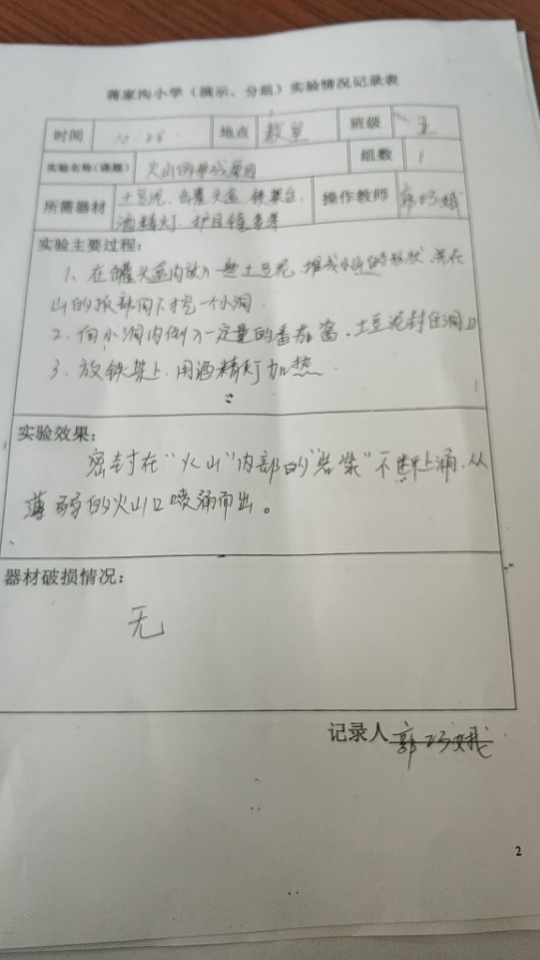 蒋家沟小学（演示、分组）实验情况记录表
时间 10.28 地点 教室 班级 五
实验名称（课题） 火山的形成原因 组数 1
所需器材 土豆泥、空罐头盒、铁架台、 操作教师
酒精灯 护目镜
实验主要过程：
1、在罐头盒内放入一些土豆泥，堆成火山的形状，并在
山的顶部向下挖一个小洞.
2、向小洞内倒入一定量的番茄酱，土豆泥封住洞口
3、放铁架上.用酒精灯加热.
实验效果：
密封在“火山”内部的“岩浆”不断上涌，从
薄弱的火山口喷涌而出。
器材破损情况：
无
记录人
2